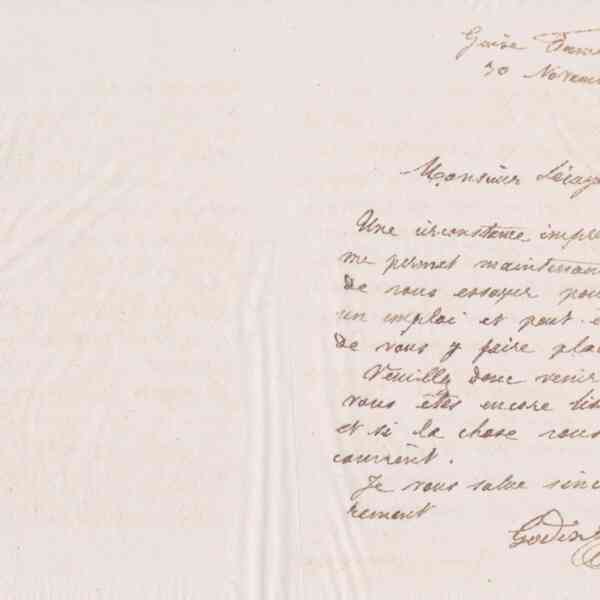 Guise Fam
30 Novem
Monsieur Lécaz
Une circonstance impré
me permet maintenan
de vous essayer pou
un emploi et peut-ê
de vous y faire plac
Veuillez donc venir
vous êtes encore lib
et si la chose vous
convient.
Je vous salue sinc
rement
Godin